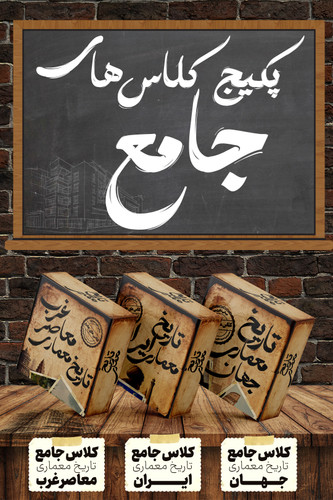 پکیج کلاس‌های
جامع
تاریخ
معماری
جهان
تاریخ
معماری
ایران
تاریخ معماری
معاصر غرب
کلاس جامع
تاریخ معماری
جهان
کلاس جامع
تاریخ معماری
ایران
کلاس جامع
تاریخ معماری
معاصر غرب